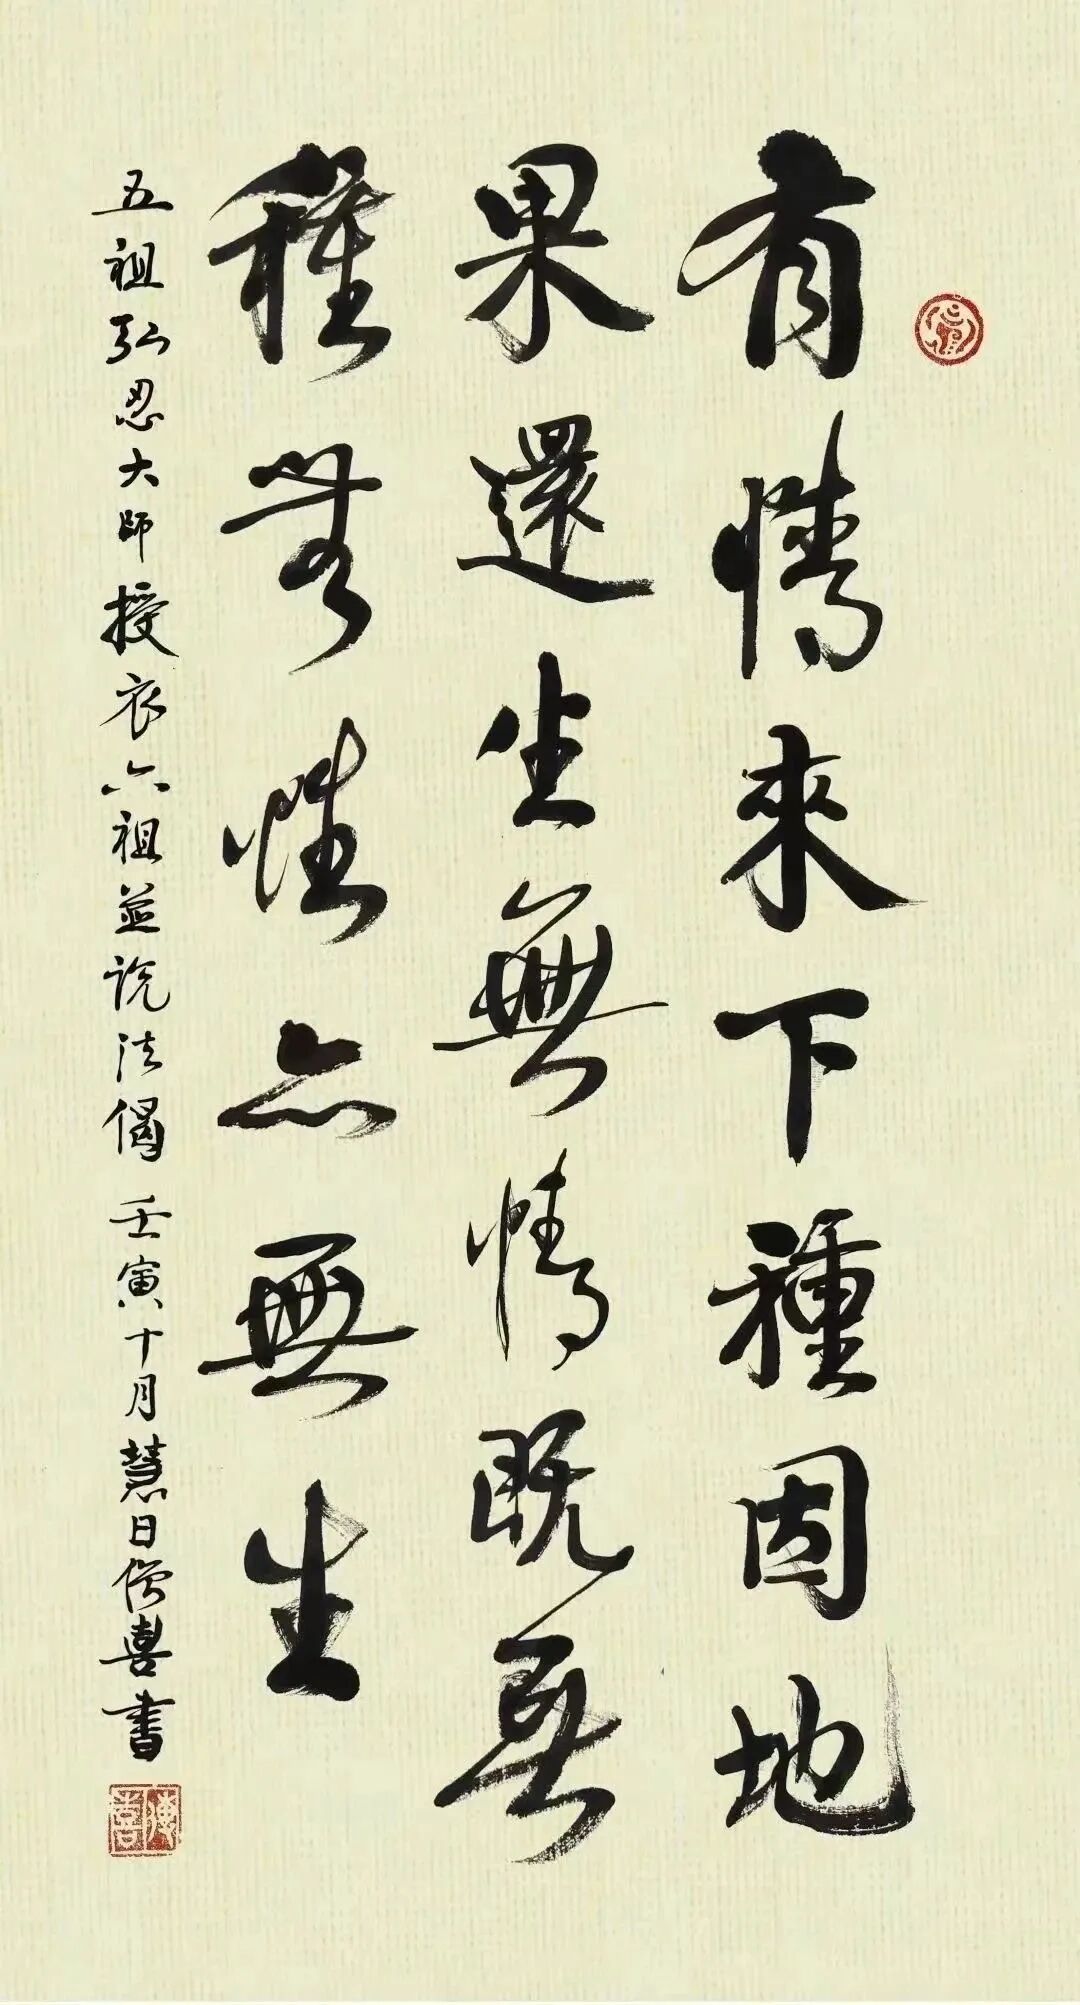 有情來下種因地
果還生無情既無
種無性亦無生
五祖弘忍大師授衣六祖並說法偈 壬寅十月慧日傳喜書
傳喜